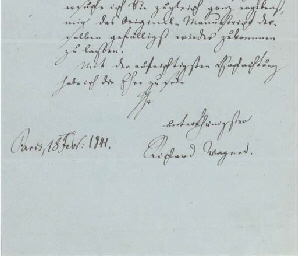 ersuche ich Sie zugleich ganz ergebenst,
mir das Original-Manuscript der-
selben gefälligst wieder zukommen
zu lassen.
Mit der aufrichtigsten Hochachtung
habe ich die Ehre zu sein
Ihr
unterthänigster
Paris, 18 Febr. 1841.
Richard Wagner.